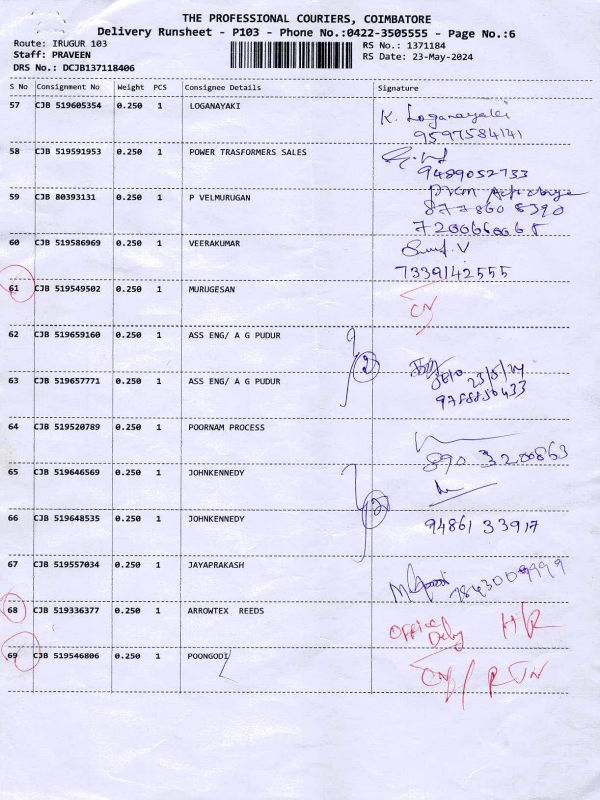 THE PROFESSIONAL COURIERS, COIMBATORE
Delivery Runsheet - P103 - Phone No.:0422-3505555 - Page No.:6
Route: IRUGUR 103
RS No.: 1371184
Staff: PRAVEEN
RS Date: 23-May-2024
DRS No.: DCJB137118406
S No Consignment No Weight PCS Consignee Details Signature
57 CJB 519605354 0.250 1 LOGANAYAKI K. Loganayaki
9597584141
58 CJB 519591953 0.250 1 POWER TRASFORMERS SALES
9489052733
59 CJB 80393131 0.250 1 P VELMURUGAN
7200660065
60 CJB 519586969 0.250 1 VEERAKUMAR
7339142555
61 CJB 519549502 0.250 1 MURUGESAN
CN
62 CJB 519659160 0.250 1 ASS ENG/ A G PUDUR
2
63 CJB 519657771 0.250 1 ASS ENG/ A G PUDUR
23/5/24
64 CJB 519520789 0.250 1 POORNAM PROCESS
890 3200863
65 CJB 519646569 0.250 1 JOHNKENNEDY
2
66 CJB 519648535 0.250 1 JOHNKENNEDY
94861 33917
67 CJB 519557034 0.250 1 JAYAPRAKASH
68 CJB 519336377 0.250 1 ARROWTEX REEDS
Office HR
Delay
69 CJB 519546806 0.250 1 POONGODI
CN / RTN